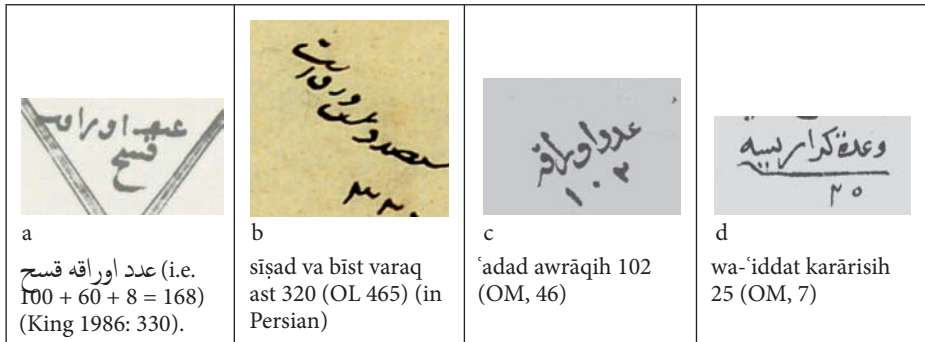 عدد اوراقه
قسح
سیصد و بیست
ورق است
۳۲۰
عدد اوراقه
١٠٢
وعدة كراريسه
٢٥
a
b
c
d
عدد اوراقه قسح (i.e.
100 + 60 + 8 = 168)
(King 1986: 330).
sīṣad va bīst varaq
ast 320 (OL 465) (in
Persian)
ʿadad awrāqih 102
(OM, 46)
wa-ʿiddat karārisih
25 (OM, 7)